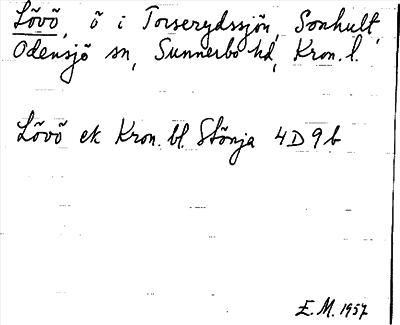 Lövö, ö i Torserydssjön, Sonhult,
Odensjö sn, Sunnerbo hd, Kron. l.
Lövö ek Kron. bl. Stönja 4D9b
E.M. 1957